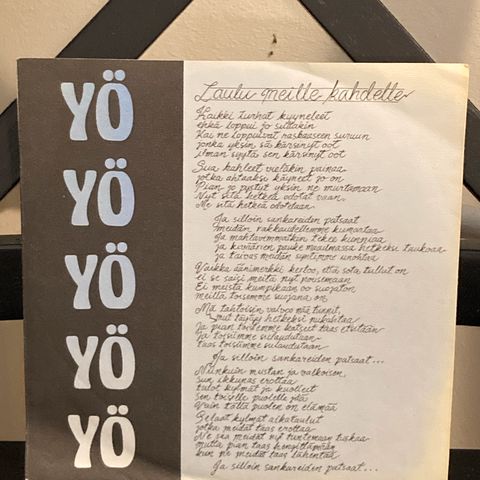 YÖ
YÖ
YÖ
YÖ
YÖ
Laulu meille kahdelle
Kaikki turhat kyyneleet
ehkä loppui jo sultakin
Kai ne loppuivat raskaaseen suruun
jonka yksin sä kärsinyt oot
ilman syytä sen kärsinyt oot
Sua kahleet vieläkin painaa
jotka ahtaaksi käyneet jo on
Pian jo pystyt yksin ne murtamaan
Nyt sitä hetkeä odotat vaan
Me sitä hetkeä odotetaan
Ja silloin sankareiden patsaat
meidän rakkaudellemme kumartaa
Ja mahtavimmatkin tekee kunniaa
ja kiväärien pauke maailmassa hetkeksi taukoaa
ja taivas meidän syntimme unohtaa
Vaikka äänimerkki kertoo, että sota tullut on
ei se saisi meitä nyt nousemaan
Ei meistä kumpikaan oo suojaton
meillä toisemme suojana on
Mä tahtoisin valvoa nää tunnit,
mut täytyy hetkeksi nukahtaa
Ja pian toisiemme katseet taas etsitään
Ja toisiimme sulaudutaan
taas toisiimme sulaudutaan
Ja silloin sankareiden patsaat...
Niinkuin mustan ja valkoisen,
sun ikkunas erottaa
tulot kylmät ja kuolleet
sen toiselle puolelle jää
Vain tällä puolen on elämää
Selaat kylmät aikataulut
jotka meidät taas erottaa
Ne saa meidät nyt tuntemaan tuskaa
mutta pian taas hengittämään
kun ne meidät taas lähentää
Ja silloin sankareiden patsaat...